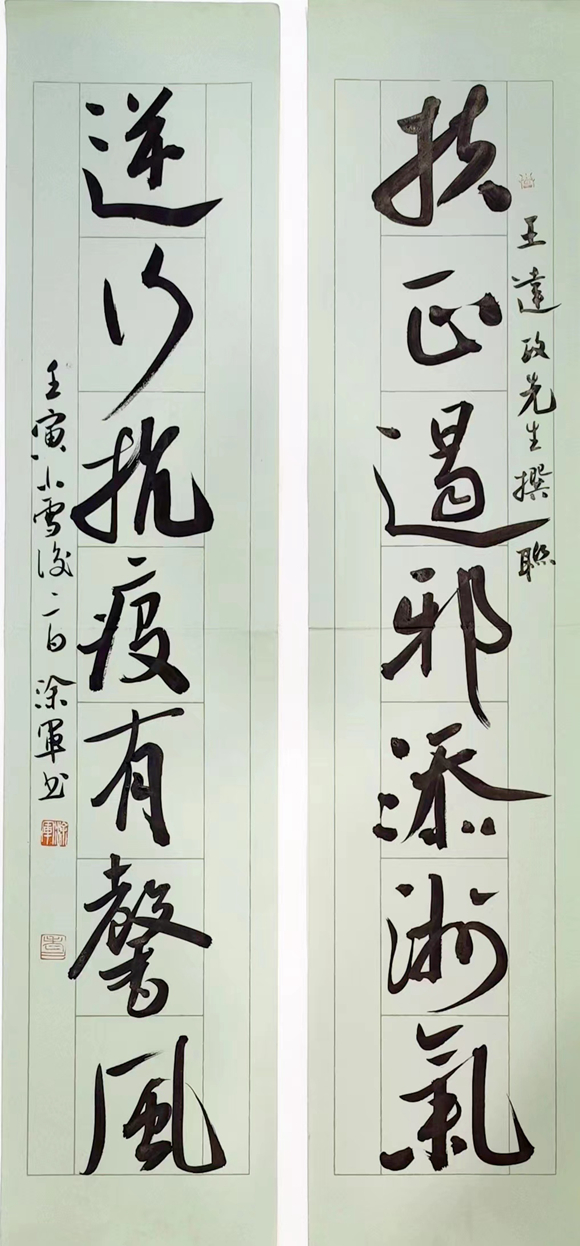 扶正遏邪添淑氣
王達政先生撰聯
逆行抗疫有馨風
壬寅小雪後二日涂軍书
涂軍